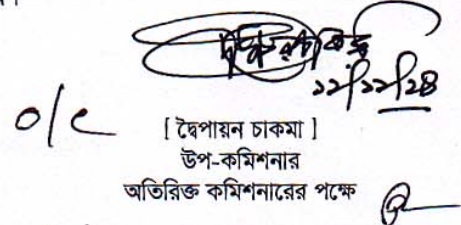 ২২/১২/২৪
o/c
[ দ্বৈপায়ন চাকমা ]
উপ-কমিশনার
অতিরিক্ত কমিশনারের পক্ষে